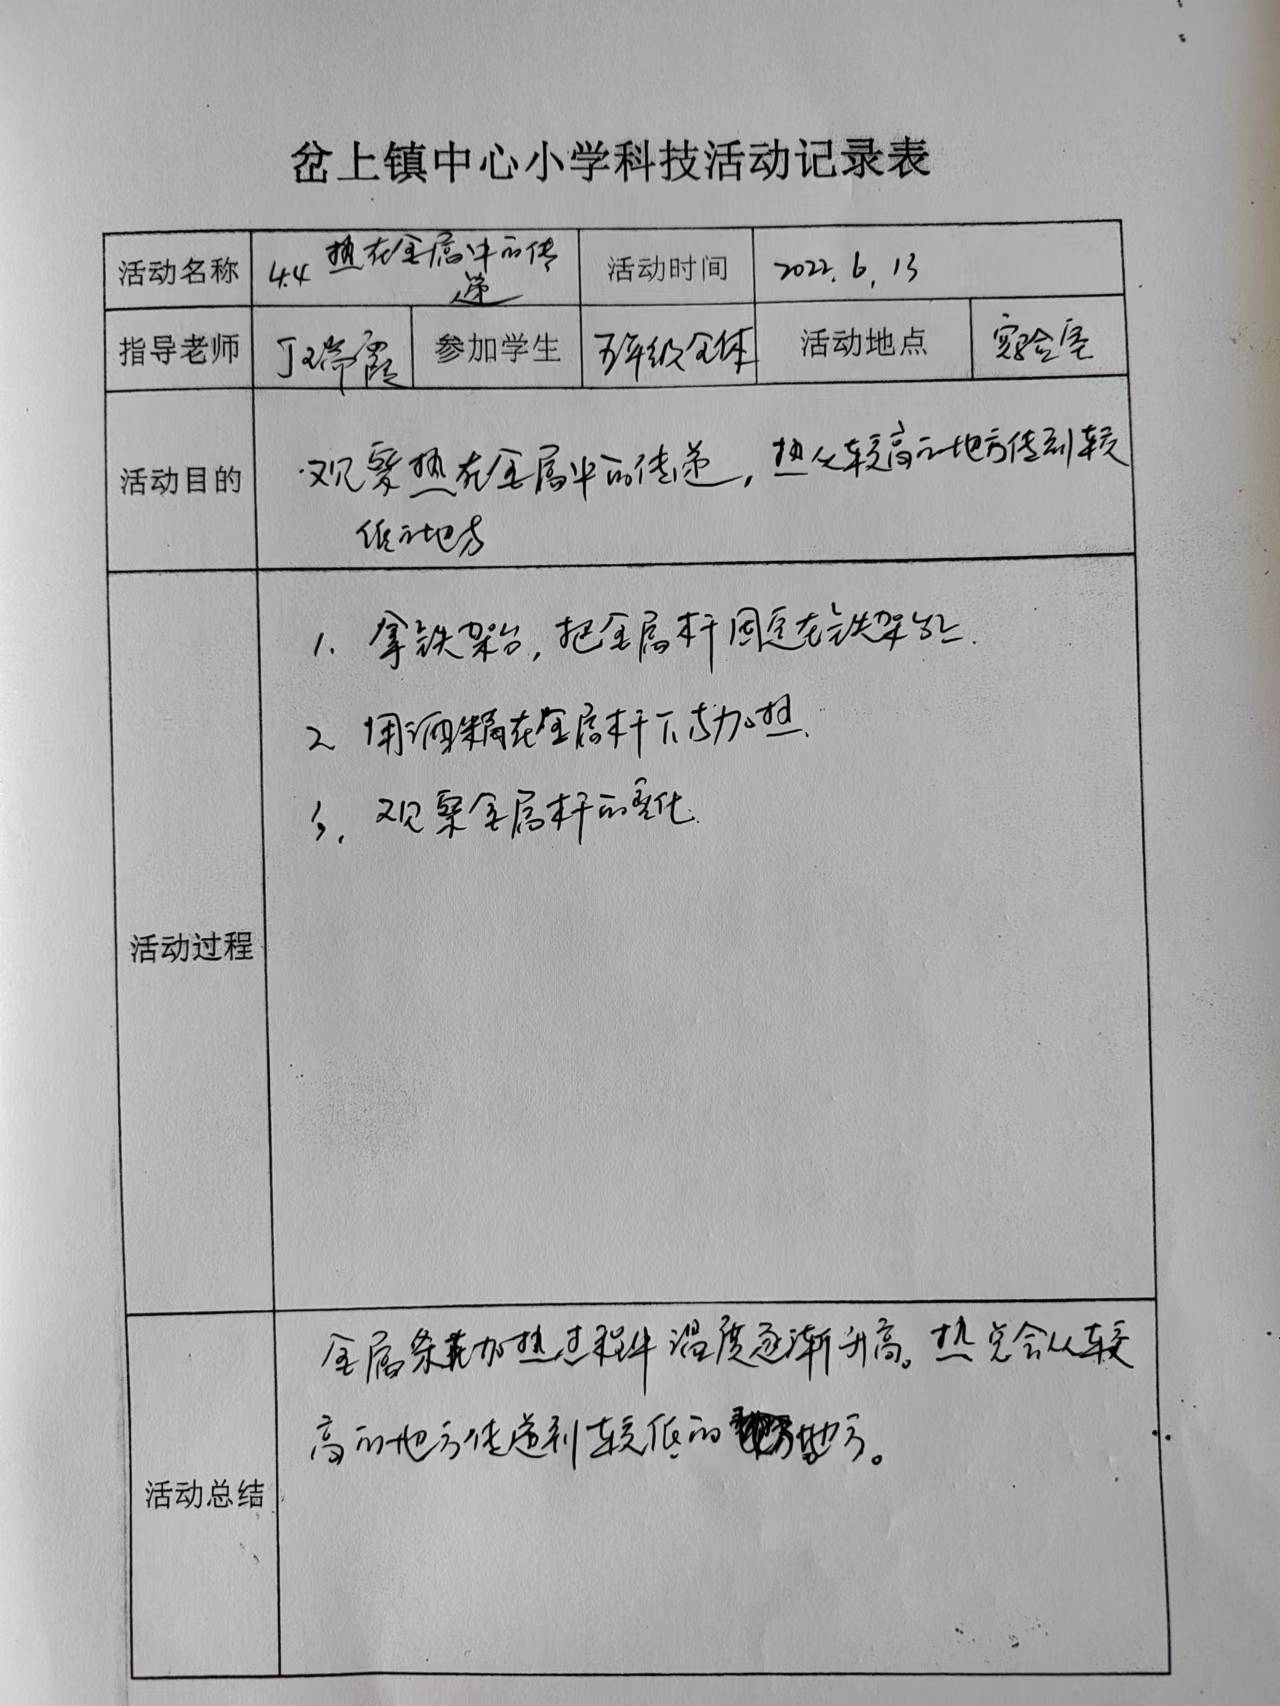 岔上镇中心小学科技活动记录表
活动名称 4.4 热在金属中的传递 活动时间 2022.6.13
指导老师 丁瑞霞 参加学生 五年级全体 活动地点 实验室
活动目的
观察热在金属中的传递，热从较高的地方传到较
低的地方
活动过程
1. 拿铁架台，把金属杆固定在铁架台上.
2. 用酒精在金属杆下方加热.
3. 观察金属杆的变化.
活动总结
金属条在加热过程中温度逐渐升高。热总会从较
高的地方传递到较低的地方。